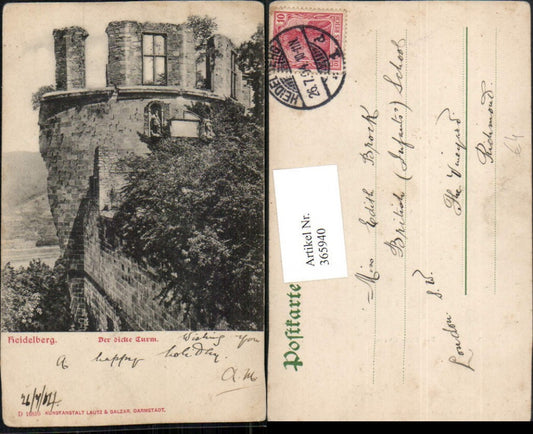 Heidelberg.
Der dicke Turm.
Wishing you
A happy holiday.
A. M
26/7/04
KUNSTANSTALT LAUTZ & BALZAR, DARMSTADT.
10
HEIDELBERG
26.7.04.10-11V.
Artikel Nr.
365940
Postkarte
Miss Edith Brock
British (Infants') School
The Vineyard
Richmond.
London S. W.